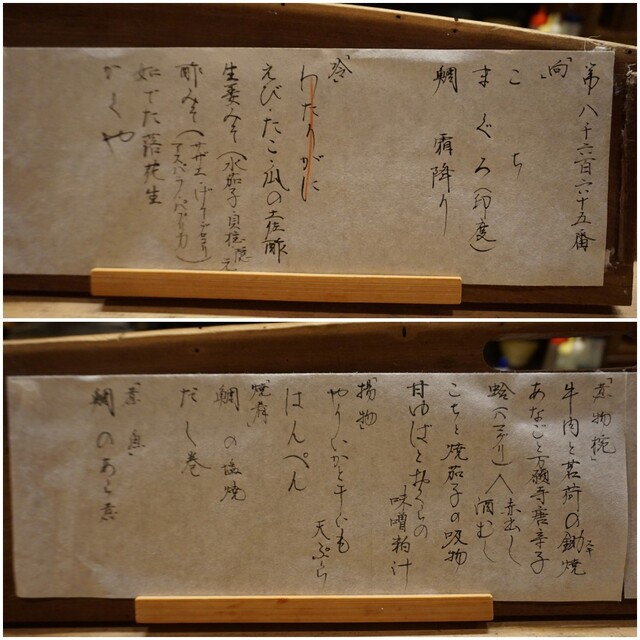 第八千六百六十五番
「向」
こち
まぐろ(印度)
鯛 霜降り
「冷」
わたりがに
えび・たこ・瓜の土佐酢
生姜みそ(水茄子・貝柱・隠元)
酢みそ(サザエ・
アスパラ・パプリカ)
茹でた落花生
かくや
「煮物椀」
牛肉と茗荷の鋤焼
スキ
あなごと万願寺唐辛子
蛤(ハマグリ)
赤出し
酒むし
こちと焼茄子の吸物
甘ゆばと
味噌粕汁
「揚物」
やりいかと干いも
天ぷら
はんぺん
「焼肴」
鯛の塩焼
だし巻
「煮魚」
鯛のあら煮